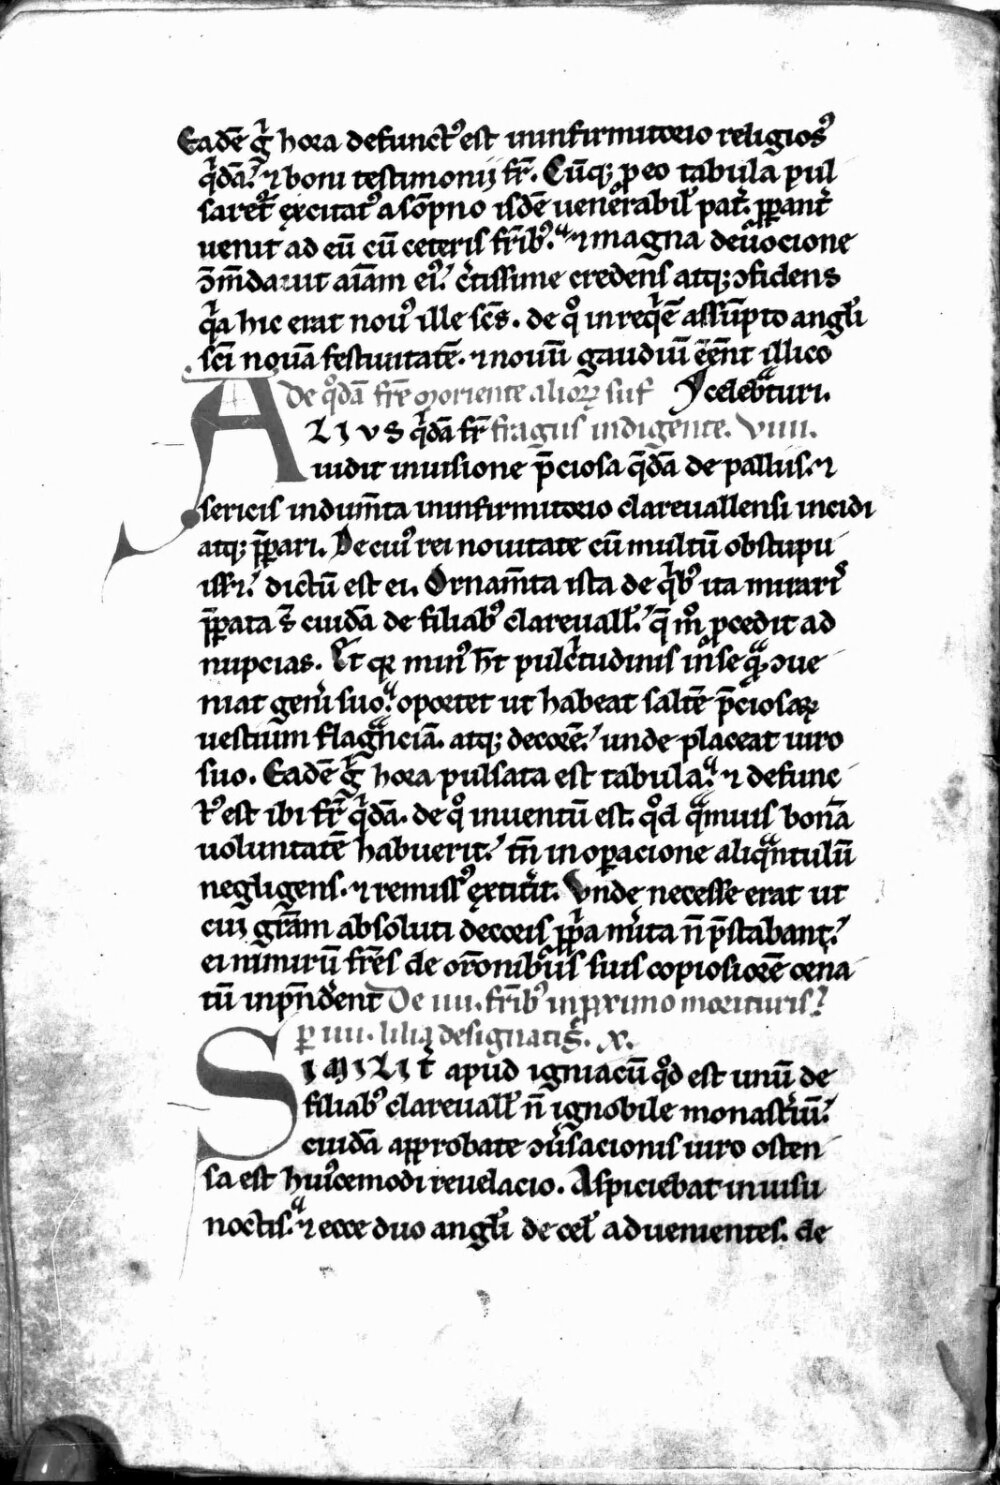 Eadē gͥ hora defunctꝰ est ininfirmitorio religiosꝰ
qͥdā. ⁊ boni testimonij fr̄. Cūq; ꝓ eo tabula pul
saret᷑ excitatꝰ a sōpno isdē uenerabil̕ pat̕. ꝓꝑant̕
uenit ad eū cū ceteris fr̄ibꝰ. ⁊ magna deuocione
ↄm̄dauit aīam eiꝰ. c̕tissime credens atq; ↄfidens
qͥa hic erat nouꝰ ille sc̄s. de qͦ in reqͥē assūpto angl̕i
sc̄i nouā festiuitatē. ⁊ nouū gaudiū eēnt illico
De qͦdā fr̄e moriente alioꝝ suf celebᵃturi.
ALIVS qͥdā fr̄ fragiis indigente. VIIII.
uidit inuisione p̄ciosa q̄dā de palliis. ⁊
sericis indum̄ta ininfirmitorio clareuallensi incidi
atq; p̄ꝑari. De cuiꝰ rei nouitate cū multū obstupu
iss᷑. dictū est ei. Ornam̄ta ista de qͥbꝰ ita miraris
p̄ꝑata s̄ cuidā de filiabꝰ clareuall̕. q̄ mͦ ꝓcedit ad
nupcias. Et qꝛ minꝰ h̄t pulc̕tudinis in se qᵃ ↄue
niat geni suo. oportet ut habeat saltē p̄ciosaꝝ
uestium flagᵃnciā. atq; decorē. unde placeat uiro
suo. Eadē gͥ hora pulsata est tabula. ⁊ defunc
tꝰ est ibi fr̄ qͥdā. de qͦ inuentū est. qͦd qᵃmuis bonā
voluntatē habuerit. tn̄ in oꝑacione aliqᵃntulū
negligens. ⁊ remissꝰ extit̕it. Vnde necesse erat ut
cui gr̄am absoluti decoris ꝓꝑa mͥta n̄ p̄stabant.
ei nimirū fr̄es de or̄onibus suis copiosiorē orna
tū inpn̄derent De IIII. fr̄ibꝰ inproximo morituris
ꝑ IIII. lilia designatis. X.
SIMILIT̕ apud igniacū qͦd est unū de
filiabꝰ clareuall̕ n̄ ignobile monast̕iū.
cuidā approbate ↄu̕sacionis uiro osten
sa est huiꝰcemodi reuelacio. Aspiciebat in uisu
noctis. ⁊ ecce duo angl̕i de cel̕ aduenientes. de